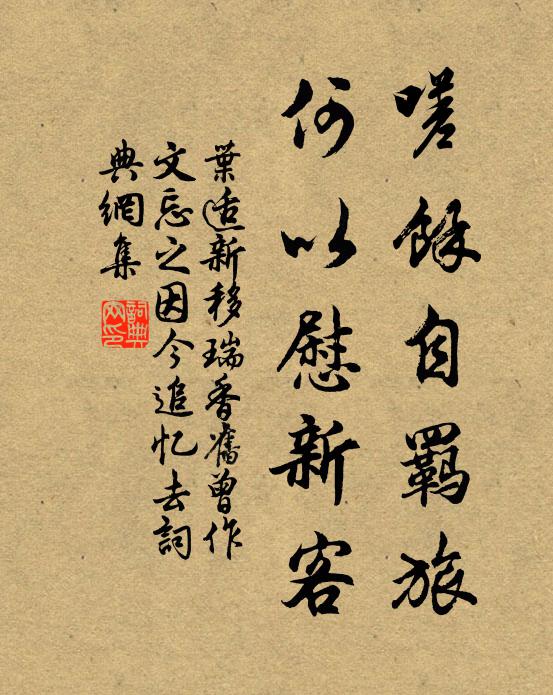 嗟餘自羈旅
何以慰新客
葉适新移瑞香舊曾作
文忘之因今追忆去詞
典網集
詞典
网印